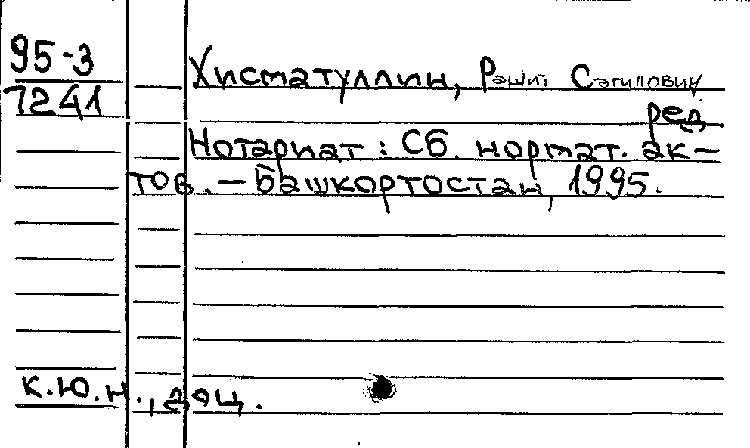 95-3
7241
Хисматуллин, Рашит Сагитович
ред.
Нотариат : Сб. нормат. ак-
тов. — Башкортостан, 1995.
к.ю.н., доц.